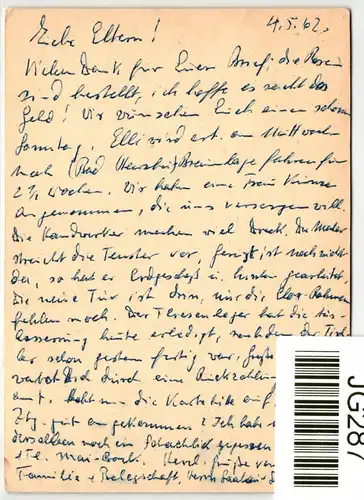 4.5.62.
Liebe Eltern!
Vielen Dank für Euren Brief, die Rosen
sind bestellt, ich hoffe es reicht das
Geld! Wir wünschen Euch einen schönen
Sonntag. Elli wird erst am Mittwoch
nach (Bad) fahren für
2½ Wochen. Wir haben eine Frau
angenommen, die uns versorgen will.
Die Handwerker machen viel Dreck. Der Maler
streicht die Fenster vor, ist noch nicht
da, so hat er Erdgeschoß u. hinten gearbeitet
Die neue Tür ist drin, nur die Glas-Rahmen
fehlen noch. Der Fliesenleger hat die Aus-
besserung heute erledigt, nachdem der Tisch-
ler schon gestern fertig war.
durch eine
amt. die Karte
Ztg. gut angekommen? Ich habe
derselben noch ein gegessen
Mai-Bowle. Herzl. Grüße von
Familie + Belegschaft, Herrn
JG287